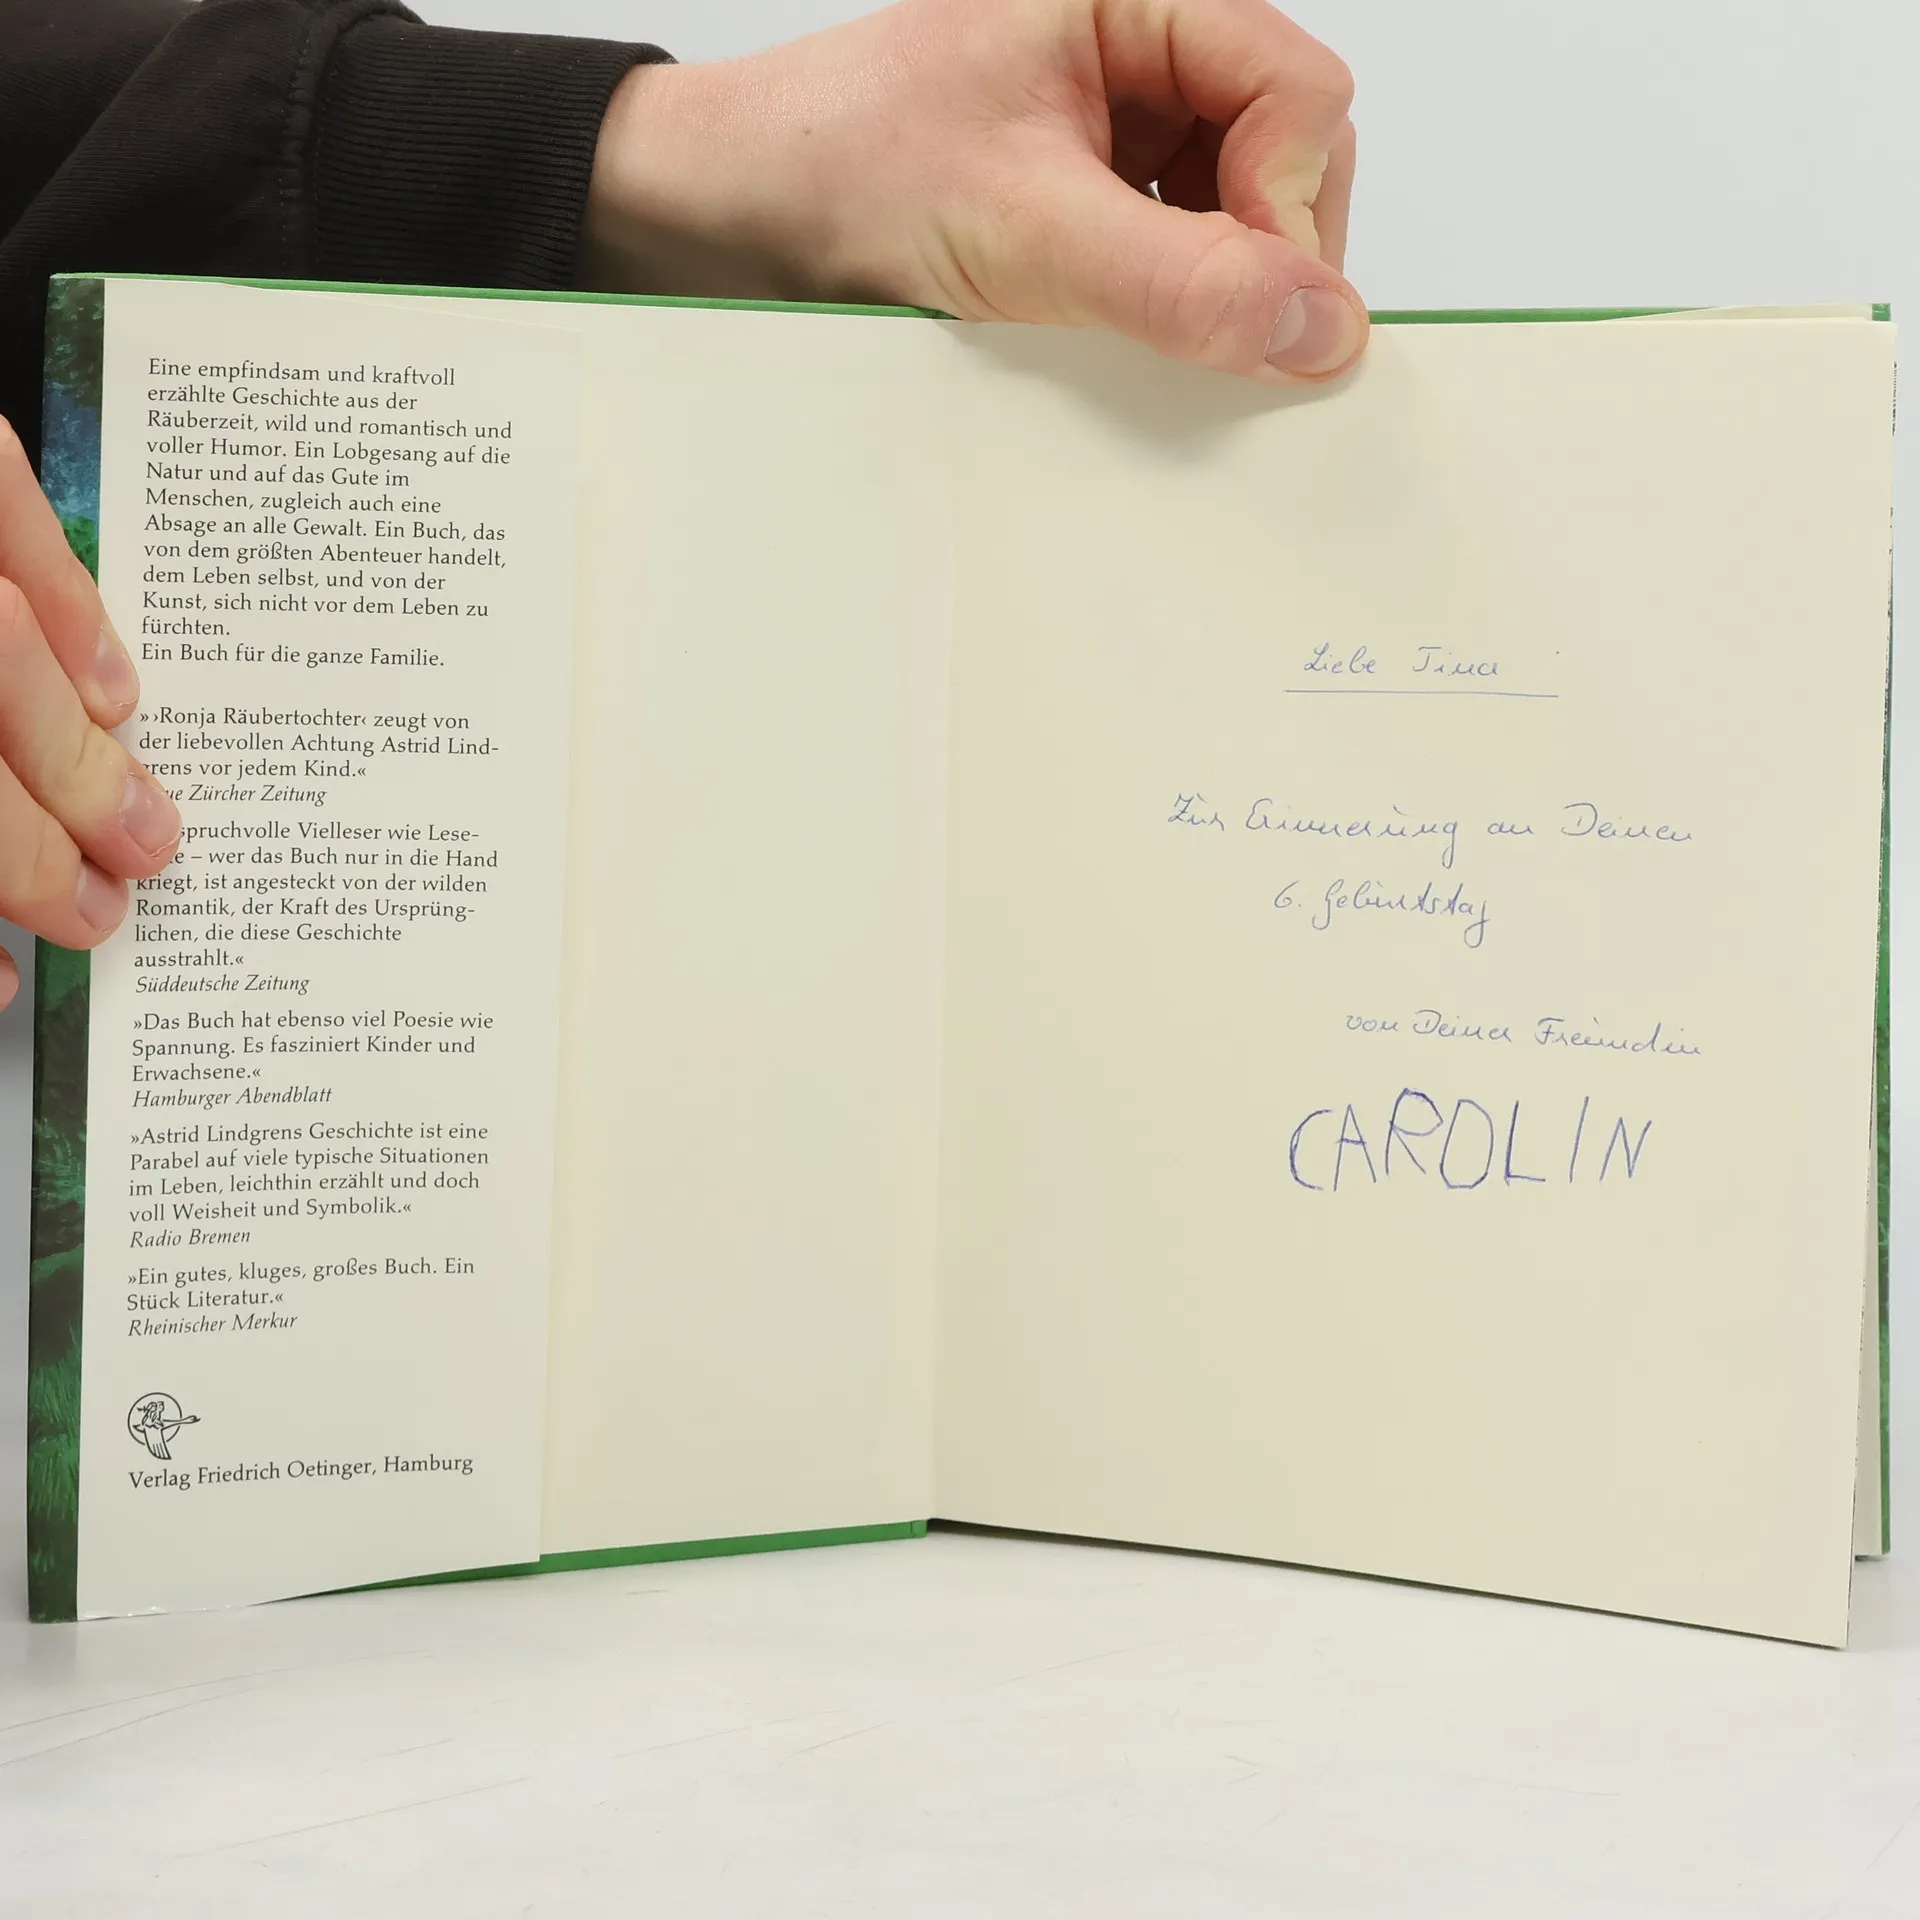 Eine empfindsam und kraftvoll
erzählte Geschichte aus der
Räuberzeit, wild und romantisch und
voller Humor. Ein Lobgesang auf die
Natur und auf das Gute im
Menschen, zugleich auch eine
Absage an alle Gewalt. Ein Buch, das
von dem größten Abenteuer handelt,
dem Leben selbst, und von der
Kunst, sich nicht vor dem Leben zu
fürchten.
Ein Buch für die ganze Familie.
» ›Ronja Räubertochter‹ zeugt von
der liebevollen Achtung Astrid Lind-
grens vor jedem Kind.«
Zürcher Zeitung
Vielleser wie Lese-
– wer das Buch nur in die Hand
kriegt, ist angesteckt von der wilden
Romantik, der Kraft des Ursprüng-
lichen, die diese Geschichte
ausstrahlt.«
Süddeutsche Zeitung
»Das Buch hat ebenso viel Poesie wie
Spannung. Es fasziniert Kinder und
Erwachsene.«
Hamburger Abendblatt
»Astrid Lindgrens Geschichte ist eine
Parabel auf viele typische Situationen
im Leben, leichthin erzählt und doch
voll Weisheit und Symbolik.«
Radio Bremen
»Ein gutes, kluges, großes Buch. Ein
Stück Literatur.«
Rheinischer Merkur
Verlag Friedrich Oetinger, Hamburg
Liebe Tina
Zur Erinnerung an Deinen
6. Geburtstag
von Deiner Freundin
CAROLIN